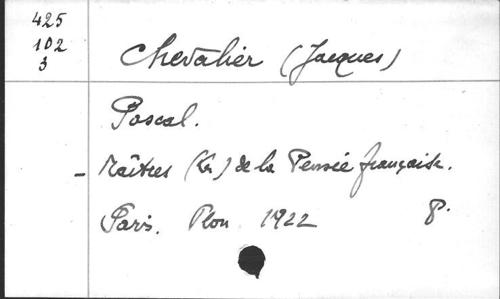 425
102
3
Chevalier (Jacques)
Pascal.
- Maîtres (Les) de la Pensée française.
Paris. Plon. 1922 8°.